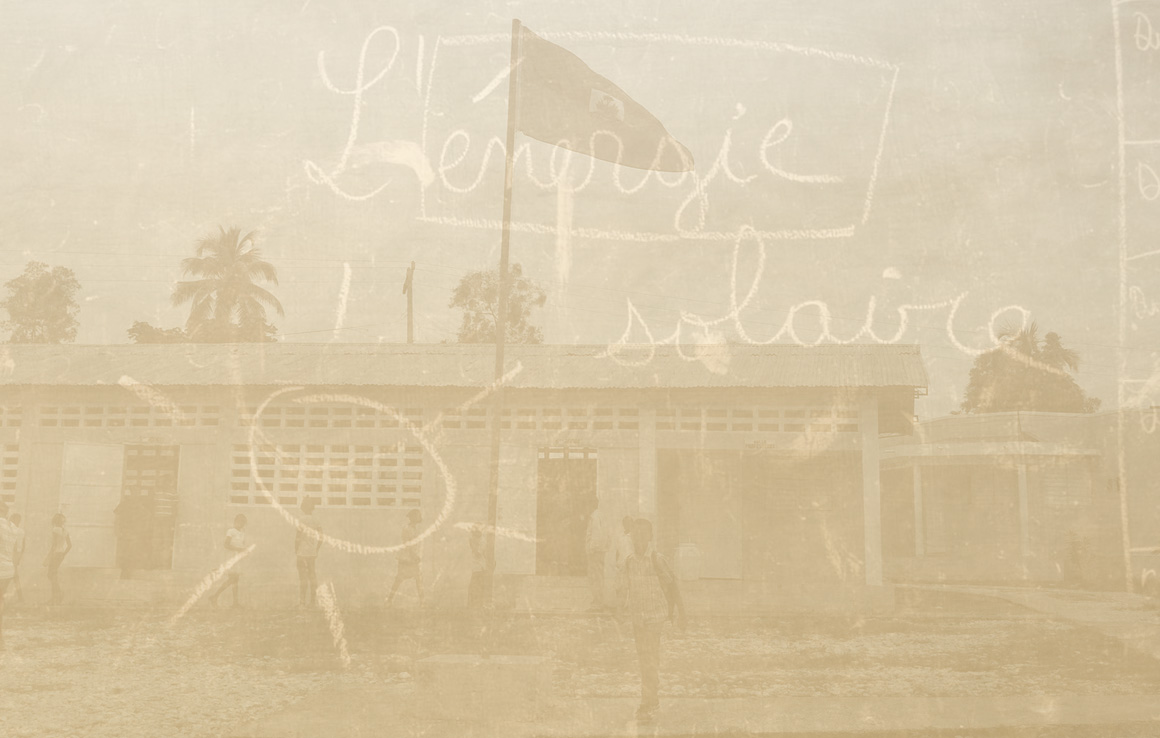 L'énergie
solaire